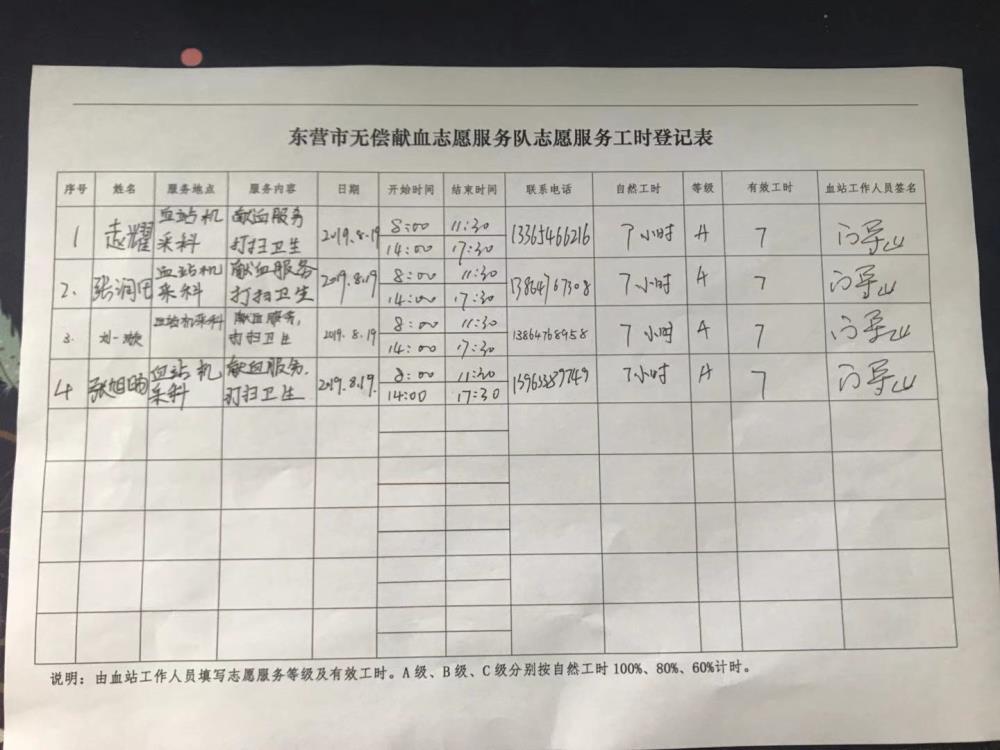 东营市无偿献血志愿服务队志愿服务工时登记表
序号 姓名 服务地点 服务内容 日期 开始时间 结束时间 联系电话 自然工时 等级 有效工时 血站工作人员签名
1 赵耀 血站机采科 献血服务打扫卫生 2019.8.19 8:00 11:30 13365466216 7小时 A 7
14:00 17:30
2. 张润田 血站机采科 献血服务打扫卫生 2019.8.19 8:00 11:30 13864767308 7小时 A 7
14:00 17:30
3. 刘一璇 血站机采科 献血服务,打扫卫生 2019.8.19 8:00 11:30 13864768958 7小时 A 7
14:00 17:30
4 张旭 血站机采科 献血服务.打扫卫生 2019.8.19. 8:00 11:30 7小时 A 7
14:00 17:30
说明：由血站工作人员填写志愿服务等级及有效工时。A级、B级、C级分别按自然工时100%、80%、60%计时。